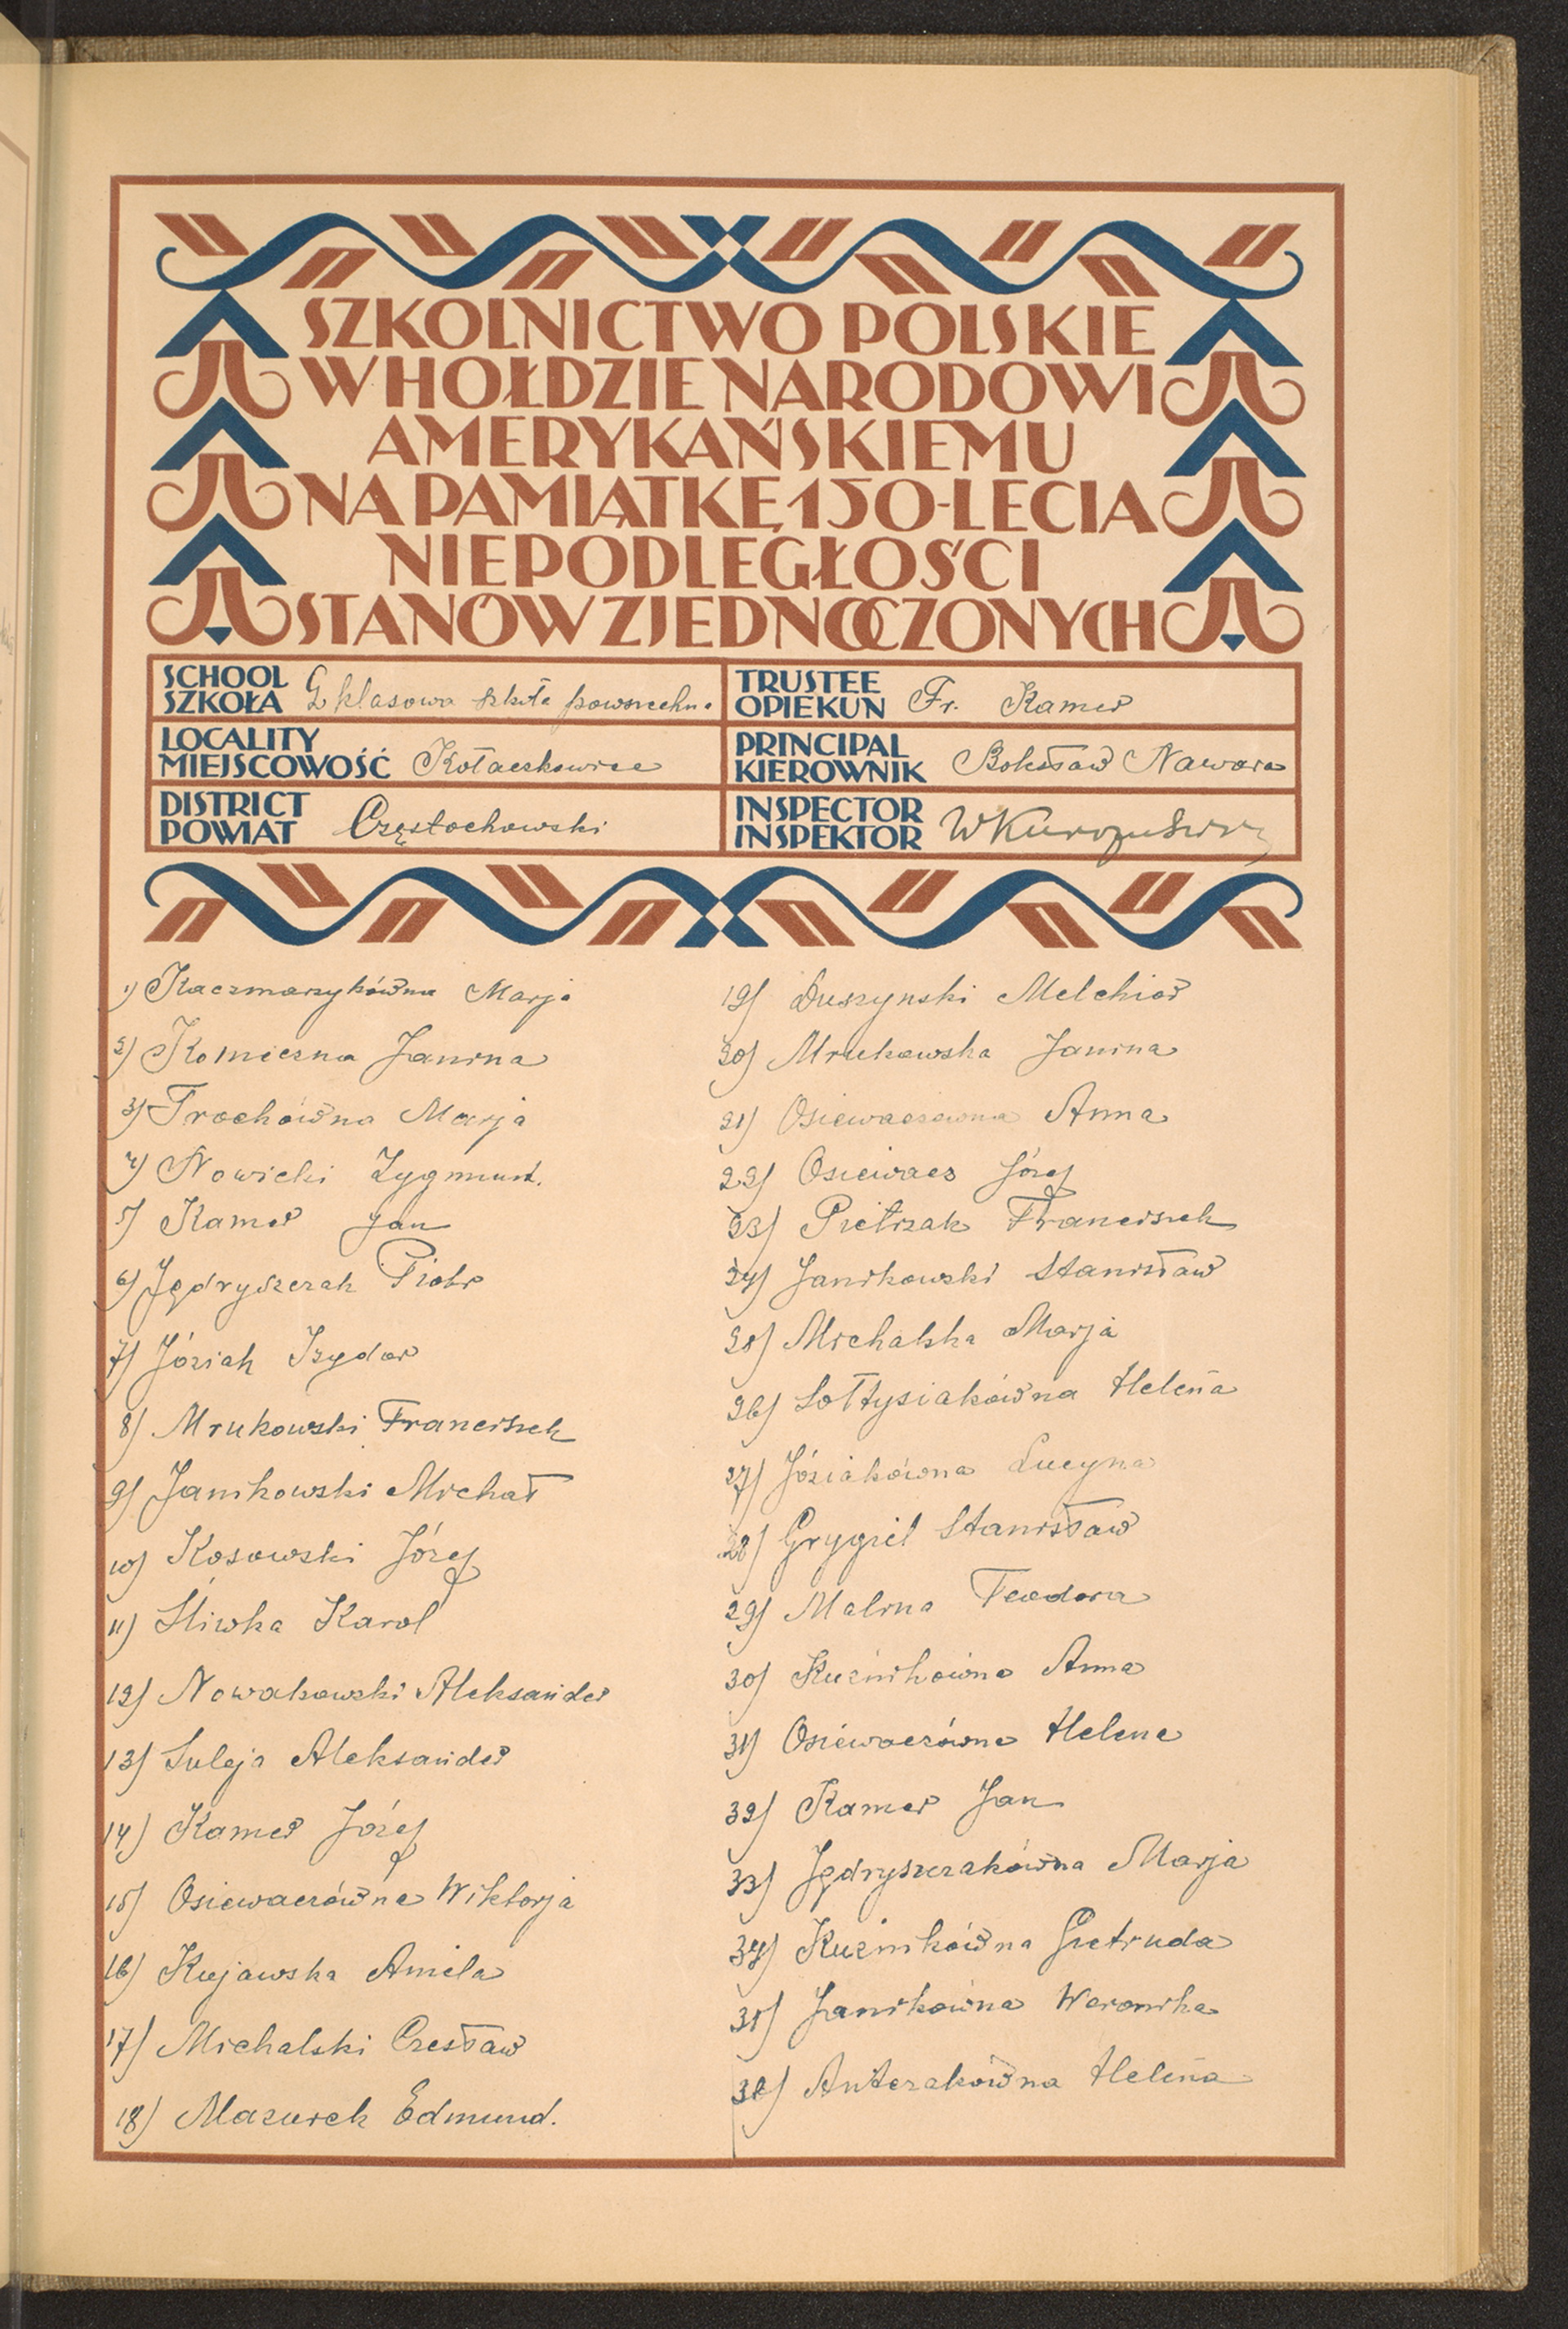 SZKOLNICTWO POLSKIE
W HOŁDZIE NARODOWI
AMERYKAŃSKIEMU
NA PAMIĄTKĘ 150-LECIA
NIEPODLEGŁOŚCI
STANÓW ZJEDNOCZONYCH
SCHOOL
SZKOŁA klasowa szkoła powszechna
TRUSTEE
OPIEKUN Fr. Kamer
LOCALITY
MIEJSCOWOŚĆ Kołaczkowice
PRINCIPAL
KIEROWNIK Bolesław Nawara
DISTRICT
POWIAT Częstochowski
INSPECTOR
INSPEKTOR
1) Kaczmarzykówna Marja
2) Komieczna Janina
3) Trochówna Marja
4) Nowicki Zygmunt.
5) Kamer Jan
6) Jędryszczak Piotr
7) Józiak Izydor
8) Mrukowski Franciszek
9) Janikowski Michał
10) Kosowski Józef
11) Śliwka Karol
12) Nowakowski Aleksander
13) Suleja Aleksander
14) Kamer Józef
15) Osiewaczówna Wiktorja
16) Kujawska Aniela
17) Michalski Czesław
18) Mazurek Edmund.
19) Duszynski Melchior
20) Mrukowska Janina
21) Osiewaczówna Anna
22) Osiewacz Józef
23) Pietrzak Franciszek
24) Janikowski Stanisław
25) Michalska Marja
26) Sołtysiakówna Helena
27) Józiakówna Lucyna
28) Grygiel Stanisław
29) Malina Teodora
30) Kuźnikówna Anna
31) Osiewaczówna Helena
32) Kamer Jan
33) Jędryszczakówna Marja
34) Kuźnikówna Gietruda
35) Janikówna Weronika
36) Antczakówna Helena